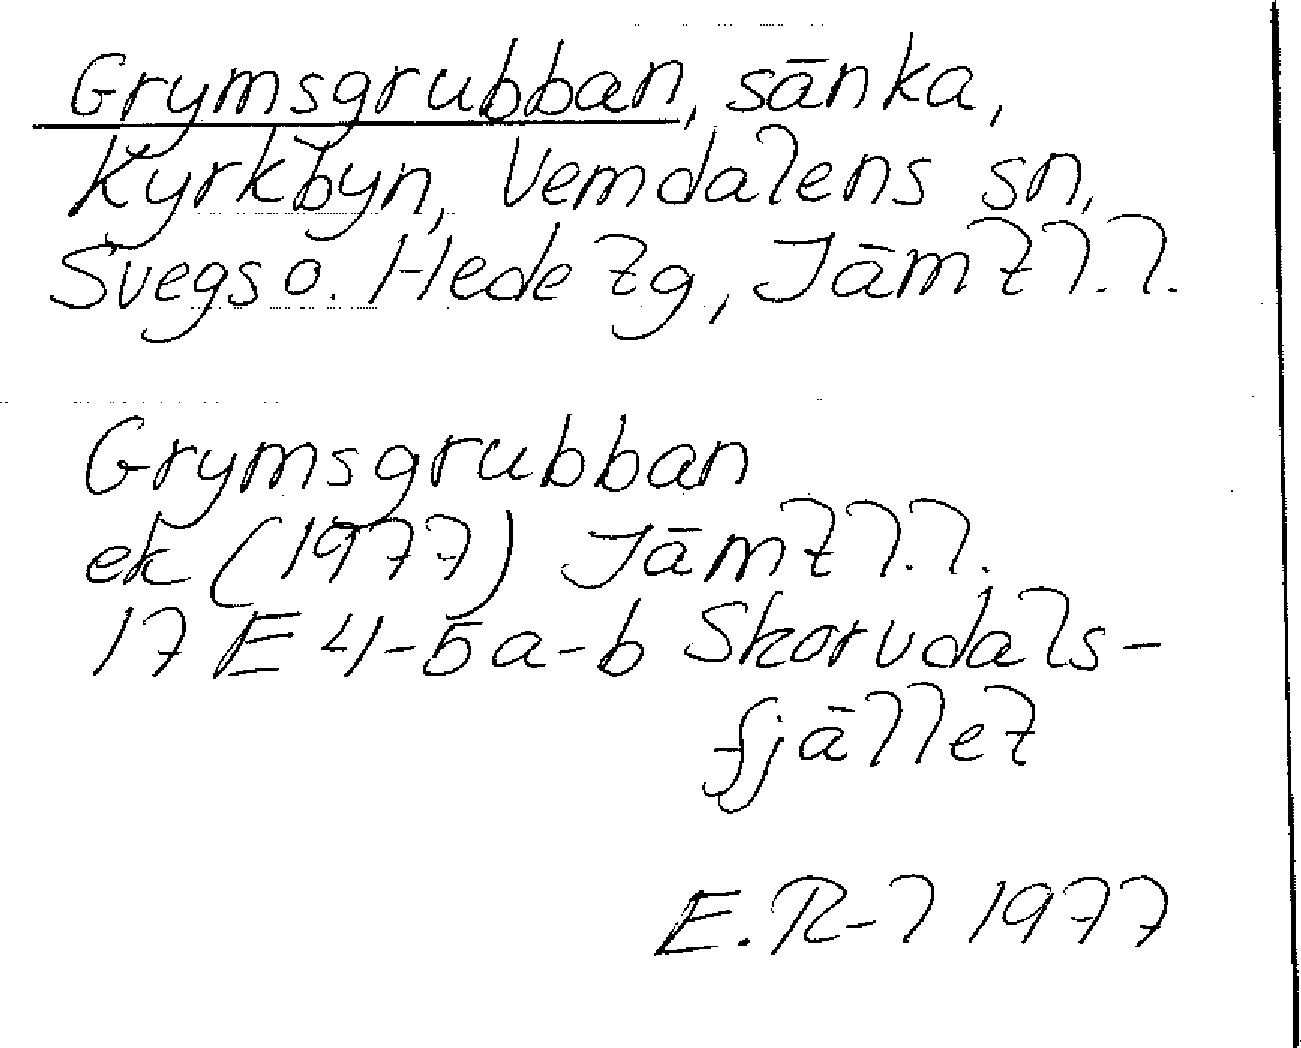 Grymsgrubban, sänka,
Kyrkbyn, Vemdalens sn,
Svegs o. Hede tg, Jämtl.l.
Grymsgrubban
ek (1977) Jämtl.l.
17 E 4-5 a-b Skorvdals-
fjället
E. R-l 1977